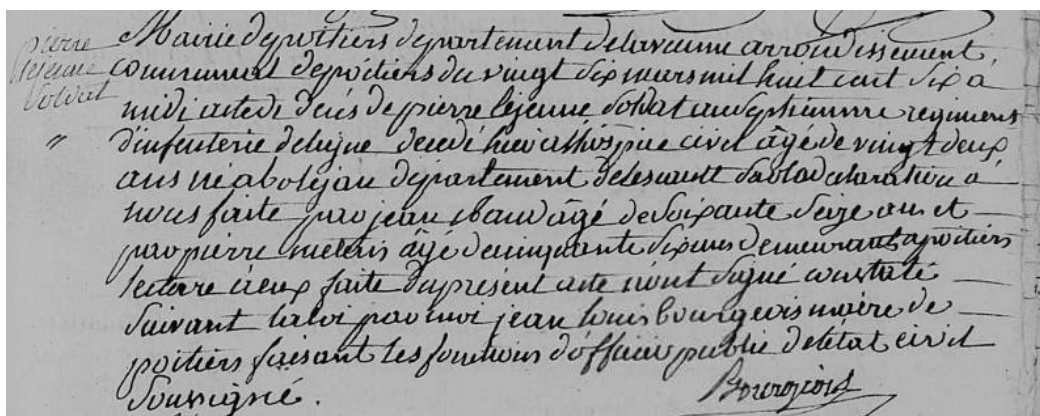 pierre
lejeune
soldat
Mairie de poitiers departement de la vienne arrondissement
communal de poitiers du vingt six mars mil huit cent six a
midi acte de décés de pierre lejeune soldat au septieme regiment
d'infenterie de ligne decedé hier a lhospice civil âgé de vingt deux
ans né a departement de lescautt sur la declaration a
nous faite par jean âgé de soixante seize ans et
par pierre âgé de cinquante six ans demeurants a poitiers
lecture a eux faite du présent acte n'ont signé constaté
suivant la loi par moi jean louis bourgeois maire de
poitiers faisant les fonctions d'officier public de letat civil
soussigné.
Bourgeois